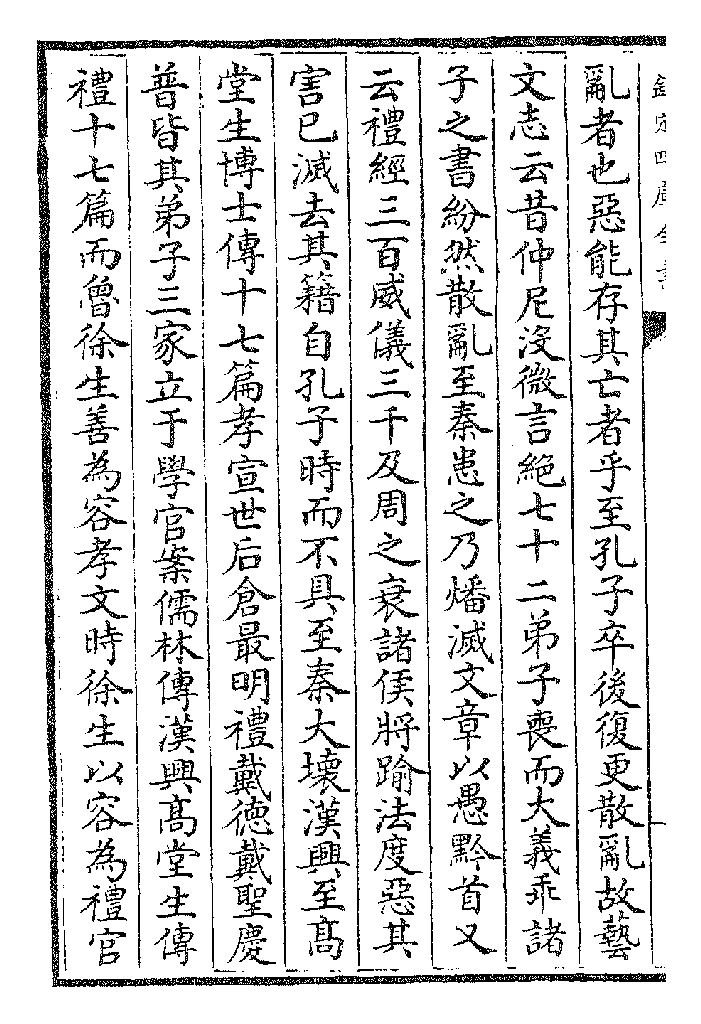 欽定四庫全書
亂者也惡能存其亡者乎至孔子卒後復更散亂故藝
文志云昔仲尼沒微言絶七十二弟子喪而大義乖諸
子之書紛然散亂至秦患之乃燔滅文章以愚黔首又
云禮經三百威儀三千及周之衰諸侯將踰法度惡其
害已滅去其籍自孔子時而不具至秦大壞漢興至髙
堂生博士傳十七篇孝宣世后倉最明禮戴德戴聖慶
普皆其弟子三家立于學官案儒林傳漢興髙堂生傳
禮十七篇而魯徐生善為容孝文時徐生以容為禮官